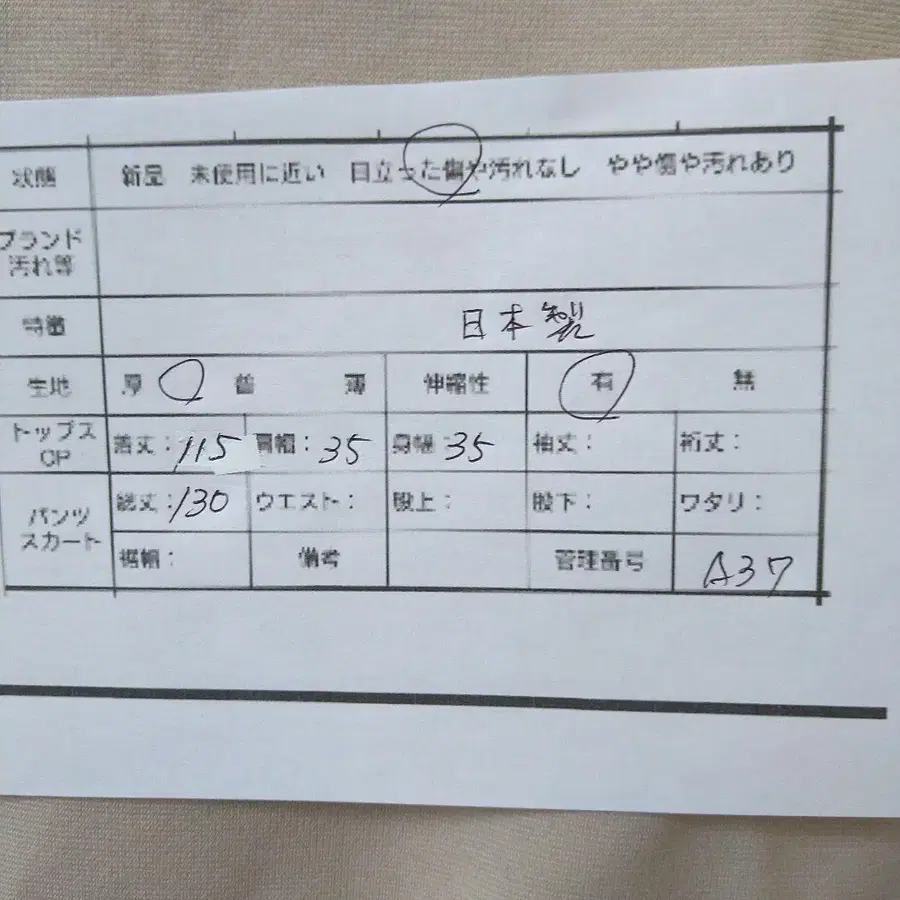 状態 新品 未使用に近い 目立った傷や汚れなし やや傷や汚れあり
ブランド
汚れ等
特徴 日本製
生地 厚 普 薄 伸縮性 有 無
トップス
OP
着丈：115 肩幅：35 身幅：35 袖丈： 裄丈：
パンツ
スカート
総丈：130 ウエスト： 股上： 股下： ワタリ：
裾幅： 備考 管理番号 A37